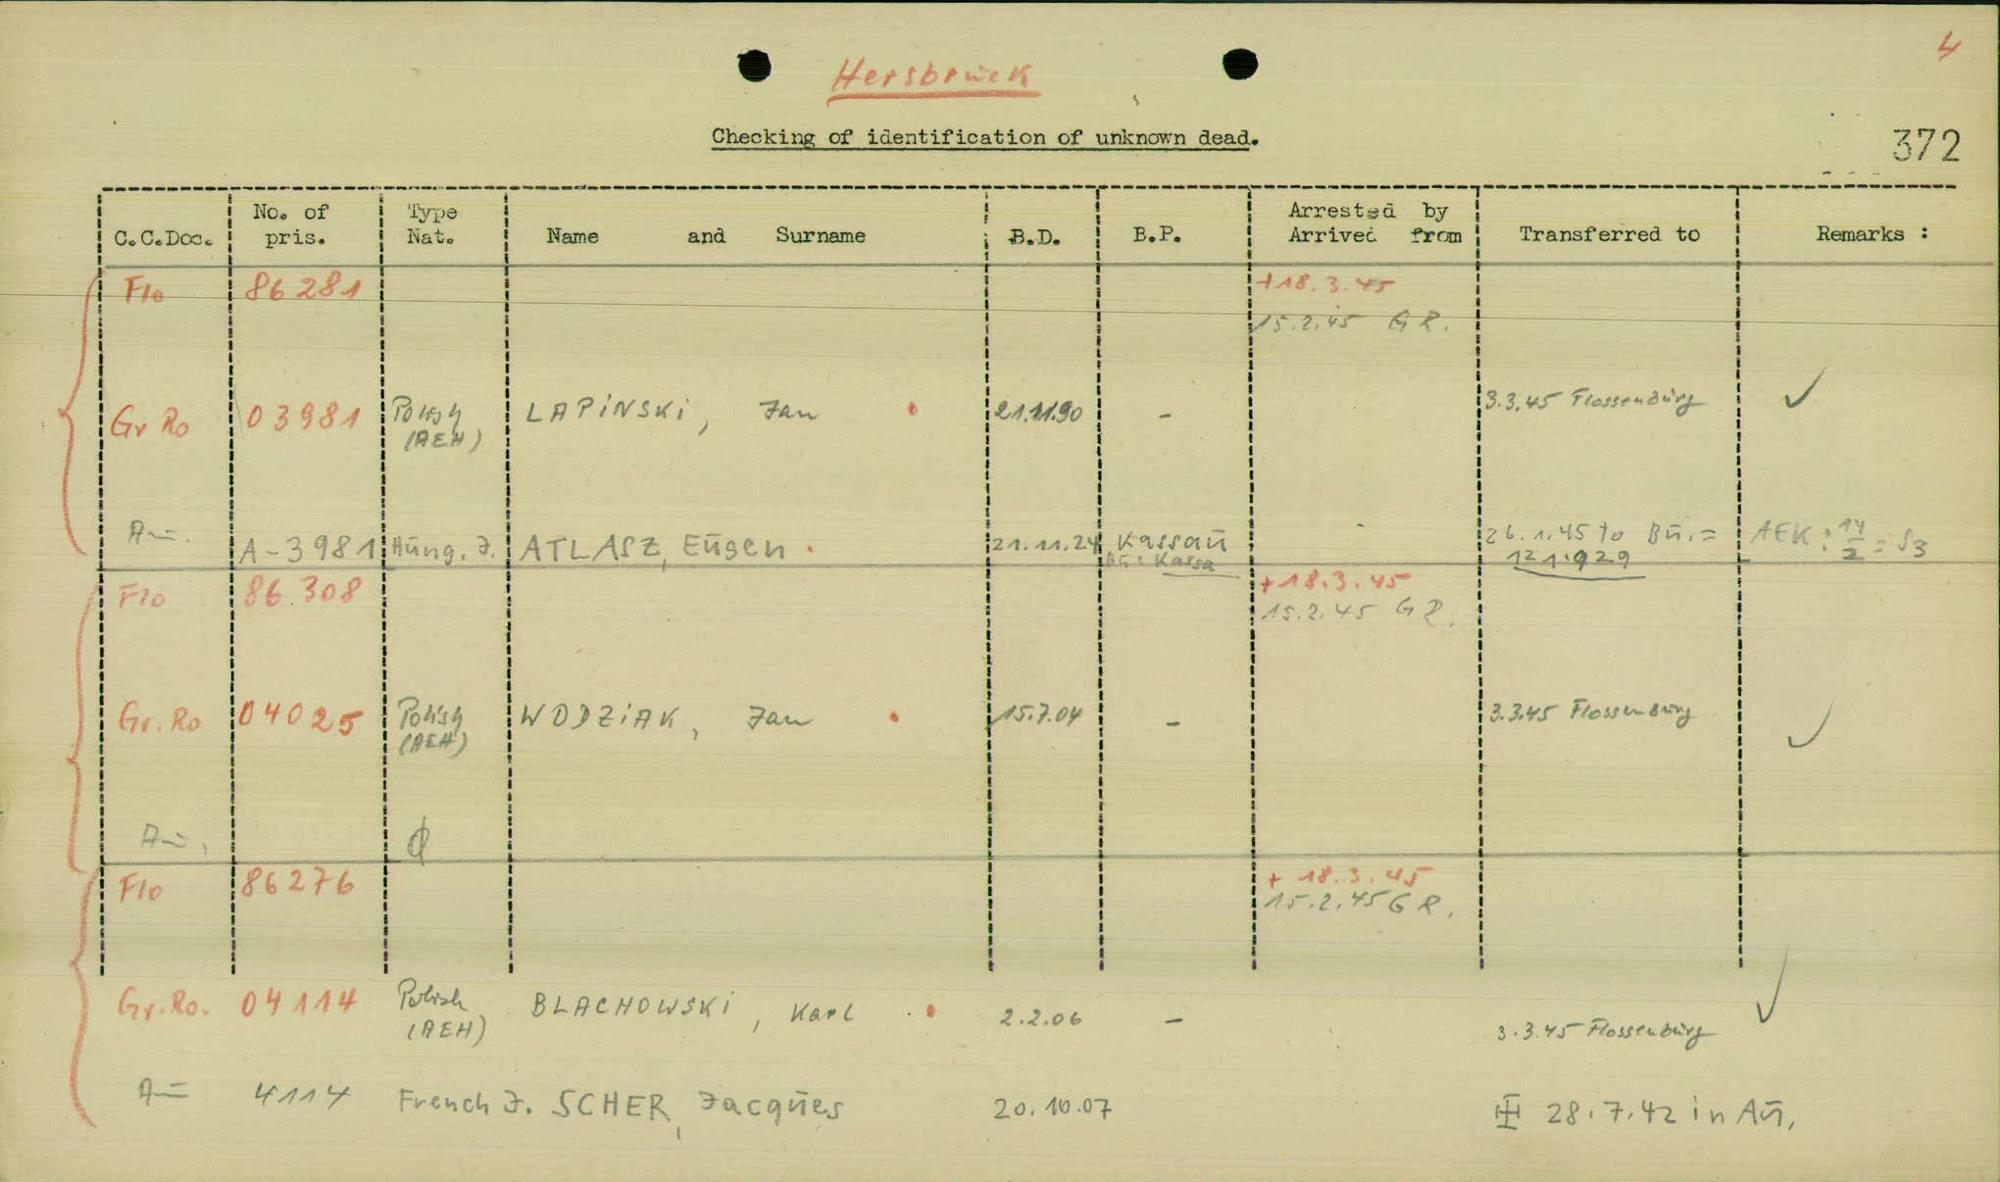 4
Hersbrück
Checking of identification of unknown dead.
372
C.C.Doc. No. of pris. Type Nat. Name and Surname B.D. B.P. Arrested by Arrived from Transferred to Remarks :
Flo 86281 +18.3.45
15.2.45 GR.
Gr Ro 03981 Polish (AEH) LAPiNSKi, Jan 21.11.90 - 3.3.45 Flossenbürg ✓
Au. A-3981 Hung. J. ATLASZ, Eugen 21.11.24 Kassau 26.1.45 to Bu. = AEK: 14/2 = S3
Bu: Kassa 121.929
Flo 86.308 +18.3.45
15.2.45 GR.
Gr. Ro 04025 Polish (AEH) WODZiAK, Jan 15.7.04 - 3.3.45 Flossenbürg ✓
Au.
Flo 86276 + 18.3.45
15.2.45 GR.
Gr. Ro. 04114 Polish (AEH) BLACHOWSKi, Karl 2.2.06 - 3.3.45 Flossenbürg ✓
Au 4114 French J. SCHER, Jacques 20.10.07 28.7.42 in Au.